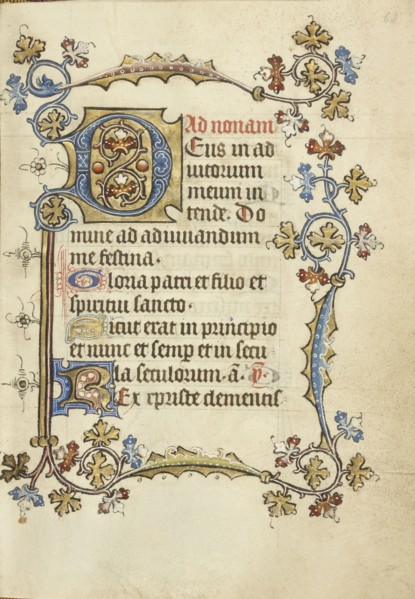 Ad nonam
Deus in ad
iutorium
meum in
tende. Do
mine ad adiuuandum
me festina.
Gloria patri et filio et
spiritui sancto.
Sicut erat in principio
et nunc et semp et in secu
la seculorum. a. p.
Rex cpriste clementis